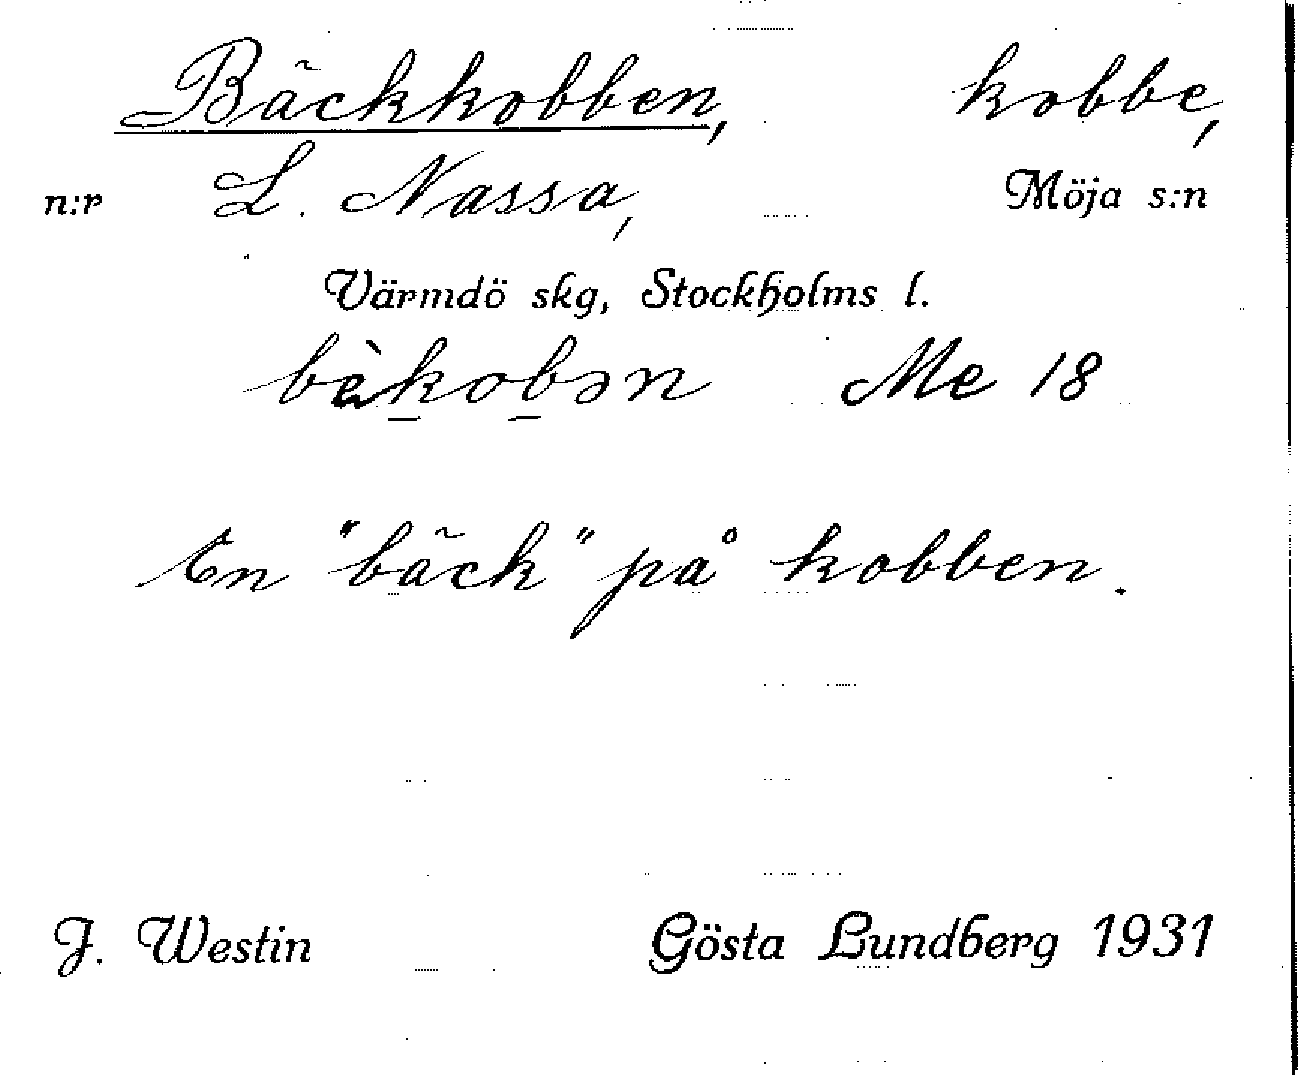 Bäckkobben, kobbe,
n:r L. Nassa, Möja s:n
Värmdö skg, Stockholms l.
bèk̠ob̠ən Me 18
En "bäck" på kobben.
J. Westin Gösta Lundberg 1931